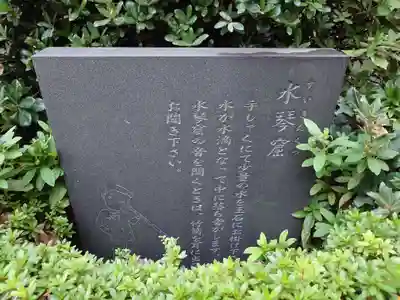 水琴窟
手しゃくにて少量の水を玉石にお掛け
水が水滴となって中に落ち響がします。
水琴窟の音を聞くときは、
お聞き下さい。